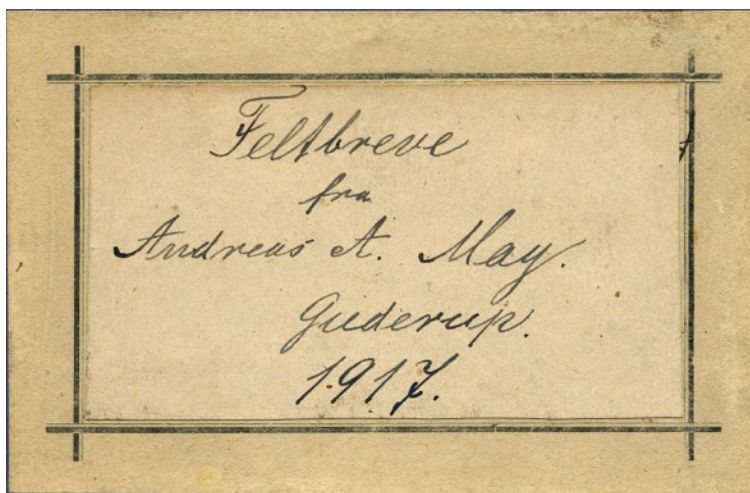 Feltbreve
fra
Andreas A. May.
Guderup.
1917.